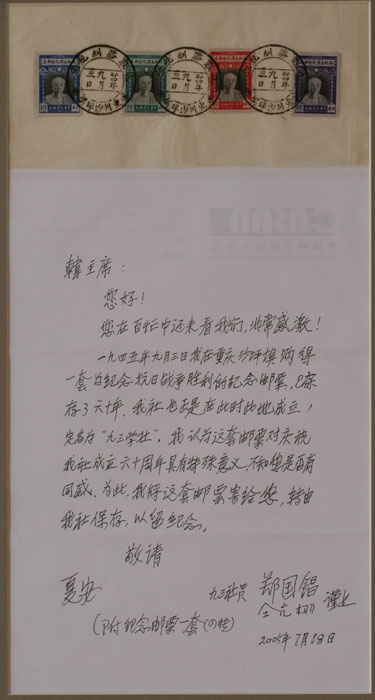 韓主席：
您好！
您在百忙中还来看我们，非常感激！
一九四五年九月三日我在重庆沙坪埧购得
一套为纪念抗日战争胜利的纪念邮票，已保
存了六十年，我社也正是在此时此地成立，
定名为“九三学社”。我认为这套邮票对庆祝
我社成立六十周年具有特殊意义，不知您是否有
同感。为此，我将这套邮票寄给您，转由
我社保存，以留纪念。
敬请
夏安
九三社员 郑国锠
仝允栩 谨上
（附纪念邮票一套（四枚）
2005年7月18日